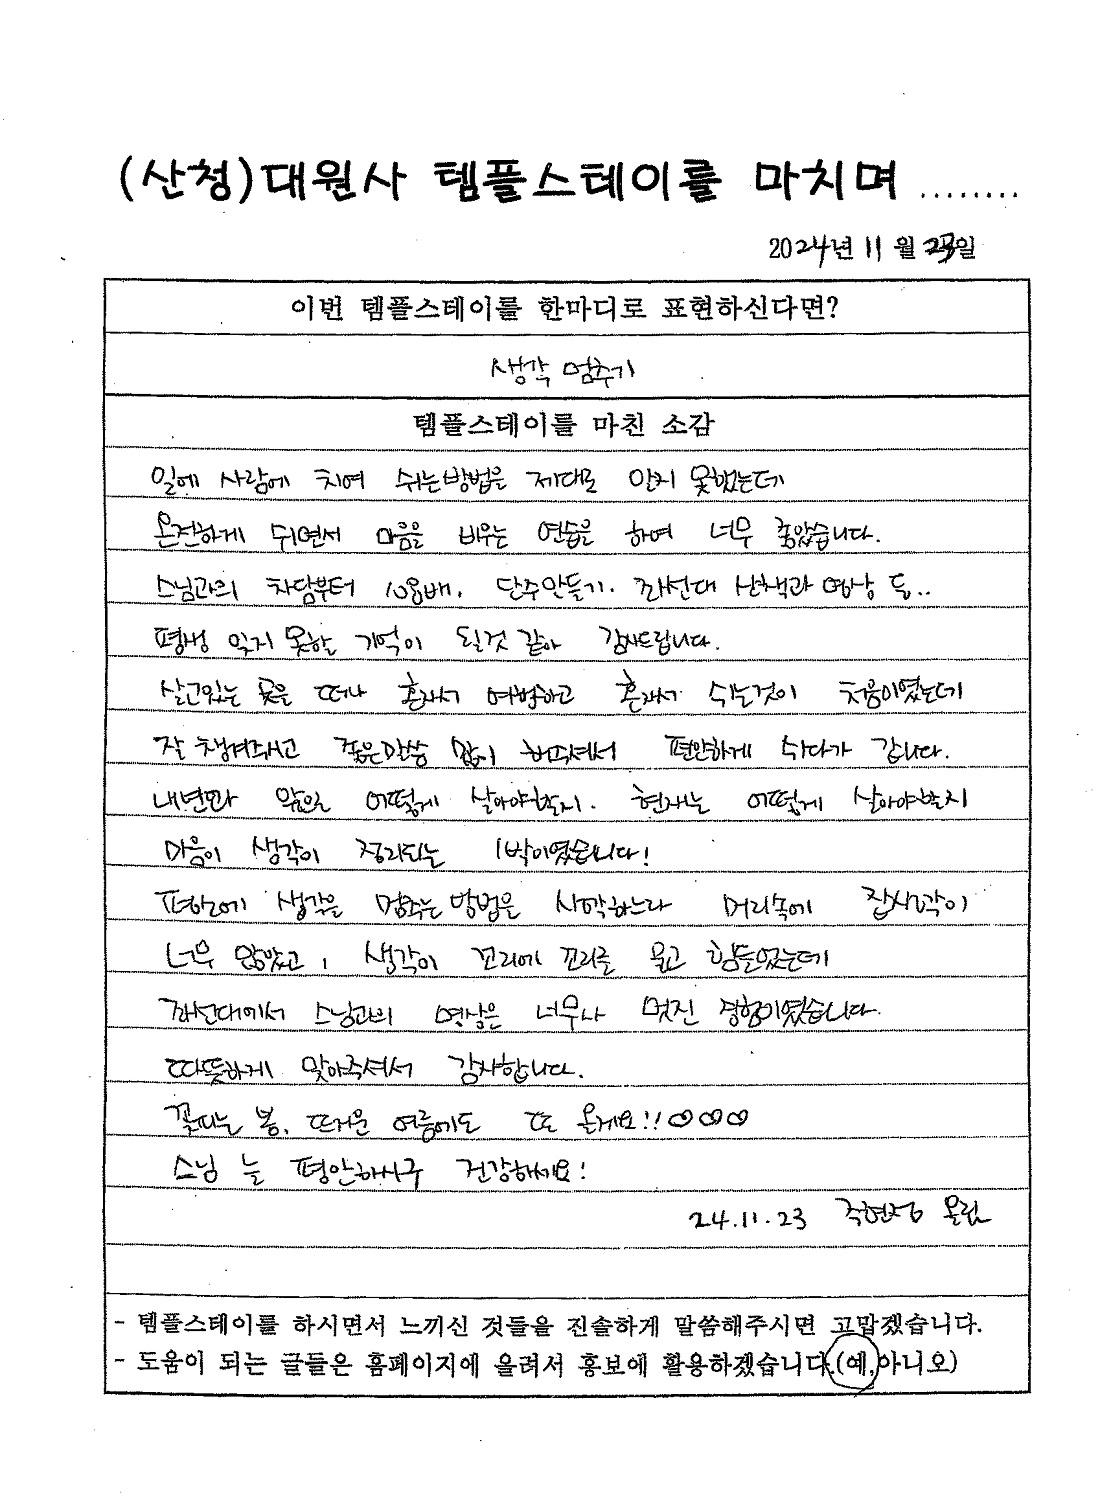 (산청)대원사 템플스테이를 마치며 ........
2024년 11월 23일
이번 템플스테이를 한마디로 표현하신다면?
생각 멈추기
템플스테이를 마친 소감
일에 사람에 치여 쉬는방법을 제대로 알지 못했는데
온전하게 쉬면서 마음을 비우는 연습을 하여 너무 좋았습니다.
스님과의 차담부터 108배, 단주만들기. 좌선대 산책과 명상 등..
평생 잊지 못할 기억이 될것 같아 감사드립니다.
살고있는 곳을 떠나 혼자서 여행하고 혼자서 쉬는것이 처음이였는데
잘 챙겨주시고 좋은말씀 많이 해주셔서 편안하게 쉬다가 갑니다.
내년과 앞으로 어떻게 살아야할지. 현재는 어떻게 살아야할지
마음이 생각이 정리되는 1박이였습니다!
평소에 생각을 멈추는 방법을 시작하느라 머리속에 잡생각이
너무 많았고, 생각이 꼬리에 꼬리를 물고 힘들었는데
좌선대에서 스님과의 명상은 너무나 멋진 경험이였습니다.
따뜻하게 맞아주셔서 감사합니다.
꽃피는 봄, 뜨거운 여름에도 또 올게요!!♡♡♡
스님 늘 평안하시구 건강하세요!
24.11.23 현정 올림
- 템플스테이를 하시면서 느끼신 것들을 진솔하게 말씀해주시면 고맙겠습니다.
- 도움이 되는 글들은 홈페이지에 올려서 홍보에 활용하겠습니다.(예,아니오)